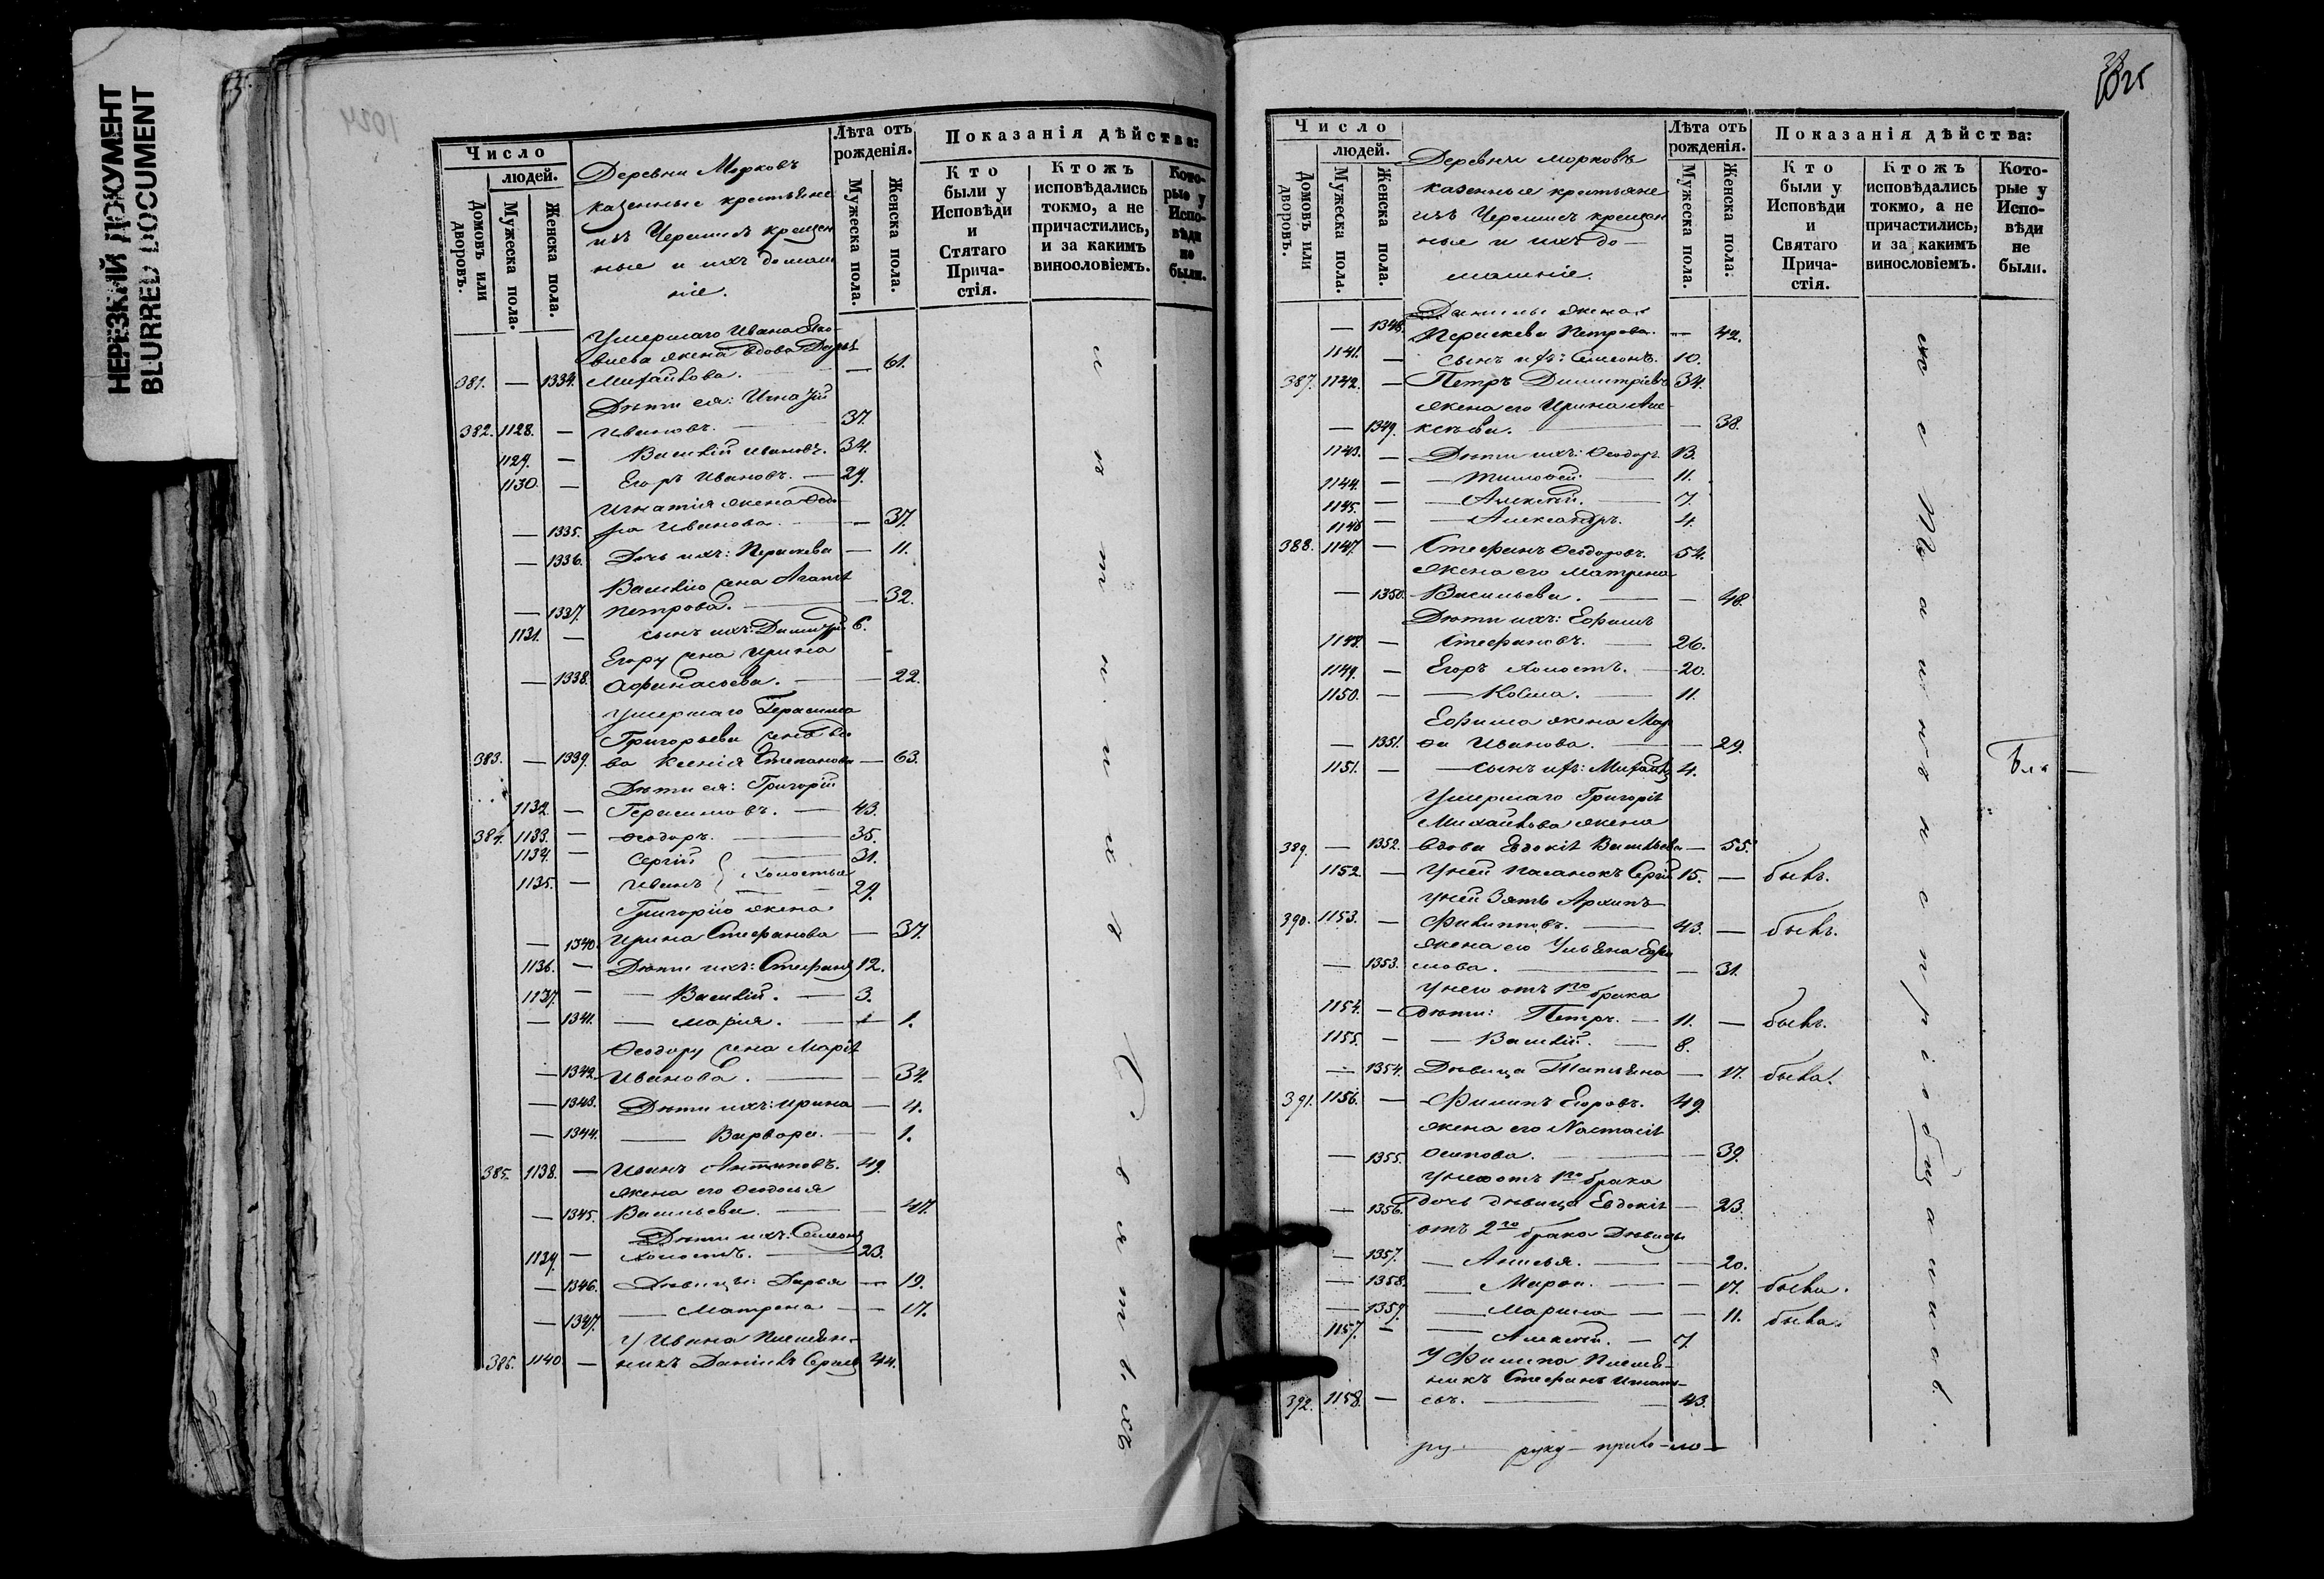 НЕРЕЗКИЙ ДОКУМЕНТ
BLURRED DOCUMENT
1024
Число
людей.
Домовъ или дворовъ.
Мужеска пола.
Женска пола.
Деревни Морковъ
казенные крестьяне
изъ Черемисъ крещен
ные и ихъ домаш
ніе.
Лѣта отъ рожденія.
Мужеска пола.
Женска пола.
Показанія дѣйства:
Кто были у Исповѣди и Стятаго Прича-стія.
Ктожъ исповѣдались токмо, а не причастились, и за какимъ винословіемъ.
Кото-рые у Испо-вѣди не были.
Умершаго Ивана Яко-
влева жена вдова Дарья
381. — 1334. Михайлова. — 61.
Дѣти ея: Игнатій
382. 1128. — Ивановъ. 37.
1129. — Василій Ивановъ. 34.
1130. — Егоръ Ивановъ. 29.
Игнатія жена Ѳедо
— 1335. ра Иванова. — 37.
— 1336. Дочь ихъ: Параскева — 11.
Василію жена Агаѳія
— 1337. Петрова. — 32.
1131. — сынъ ихъ: Димитрій 6.
Егору жена Ирина
— 1338. Афанасьева. — 22.
Умершаго Герасима
Григорьева жена вдо
383. — 1339. ва Ксенія Степанова — 63.
Дѣти ея: Григорій
1132. — Герасимовъ. 43.
384. 1133. — Ѳеодоръ. 35.
1134. — Сергій 31.
1135. — Иванъ холостые 29.
Григорію жена
— 1340. Ирина Стефанова — 37.
1136. — Дѣти ихъ: Стефанъ 12.
1137. — Василій. 3.
— 1341. — Марія. — 1.
Ѳеодору жена Марія
— 1342. Иванова. — 34.
— 1343. Дѣти ихъ: Ирина — 4.
— 1344. Варвара. — 1.
385. 1138. — Иванъ Антиповъ. 49.
жена его Ѳеодосья
— 1345. Васильева. — 47.
Дѣти ихъ: Семенъ
1139. — холостъ. 23.
— 1346. Дѣвицы: Дарья — 19.
— 1347. Матрена — 17.
У Ивана племян-
386. 1140. — никъ Даніилъ Сергѣевъ 44.
и п т н и х ъ
С в я т ы х ъ
1025
Число
людей.
Домовъ или дворовъ.
Мужеска пола.
Женска пола.
Деревни Морковъ
казенные крестьяне
изъ Черемисъ крещен
ные и ихъ до-
машніе.
Лѣта отъ рожденія.
Мужеска пола.
Женска пола:
Показанія дѣйства:
Кто были у Исповѣди и Святаго Прича-стія.
Ктожъ исповѣдались токмо, а не причастились, и за какимъ винословіемъ.
Кото-рые у Испо-вѣди не были.
Данилы жена
— 1348. Параскева Петрова. — 42.
1141. — сынъ ихъ: Семенъ. 10.
387. 1142. — Петръ Димитріевъ 34.
жена его Ирина Але-
— 1349. ксѣева. — 38.
1143. — Дѣти ихъ: Ѳеодоръ 13.
1144. — Тимоѳей. 11.
1145. — Алексѣй. 7.
1146 — Александръ. 4.
388. 1147. — Стефанъ Ѳеодоровъ. 54.
жена его Матрена
— 1350. Васильева. — 48.
Дѣти ихъ: Ефимъ
1148. — Стефановъ. 26.
1149. — Егоръ холостъ. 20.
1150. — Косма. 11.
Ефима жена Мар
— 1351. ѳа Иванова. — 29.
1151. — сынъ ихъ: Михаилъ 4.
Умершаго Григорія
Михайлова жена
389. — 1352. вдова Евдокія Васильева — 55.
1152. — У ней пасынокъ Сергій 15. — бывъ.
У ней зять Архипъ
390. 1153. — Филипповъ. 43. — бывъ.
жена его Ульяна Ефи
— 1353. мова. — 31.
У него отъ 1го брака
1154. — дѣти: Петръ. 11. — бывъ.
1155. — Василій. 8.
— 1354. Дѣвица Татьяна — 17. быва.
391. 1156. — Филипъ Егоровъ. 49.
жена его Настасія
— 1355. Осипова. — 39.
У нихъ отъ 1го брака
— 1356. дочь дѣвица Евдокія — 23.
отъ 2го брака дѣвицы
— 1357. Анисья. — 20.
— 1358. Марѳа. — 17. быва.
— 1359. Марина — 11. быва.
1157. — Алексѣй. 7.
У Филипа племян-
никъ Стефанъ Игнать-
392. 1158. — евъ. 43.
Т а и н ъ н е п р і о б щ а л и с ь.
ру — руку — прило-